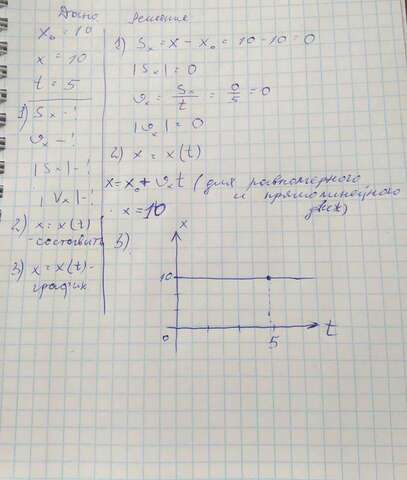 Дано
x₀ = 10
x = 10
t = 5
1) Sₓ - ?
υₓ - ?
|Sₓ| - ?
|Vₓ| - ?
2) x = x(t)
- составить
3) x = x(t) -
график
Решение
1) Sₓ = x - x₀ = 10 - 10 = 0
|Sₓ| = 0
υₓ = Sₓ/t = 0/5 = 0
|υₓ| = 0
2) x = x(t)
x = x₀ + υₓt (для равномерного
и прямолинейного
движ)
x = 10
3)
x
10
0
5
t